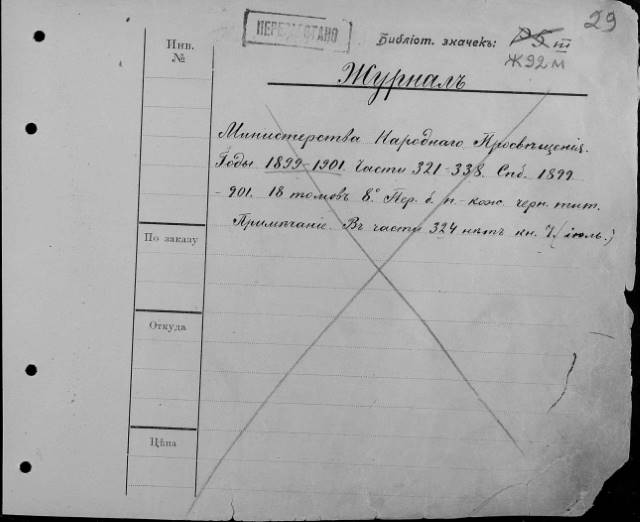 29
ПЕРЕРАБОТАНО
Библіот. значекъ: Р5 III
Ж92м
Инв.
№
Журналъ
Министерства Народнаго Просвѣщенія.
Годы 1899-1901. Части 321-338. Спб. 1899
-901. 18 томовъ 8º. Пер. б. п.-кож. черн. тит.
Примѣчаніе. Въ части 324 нѣтъ кн. 7 (іюль.)
По заказу
Откуда
Цѣна